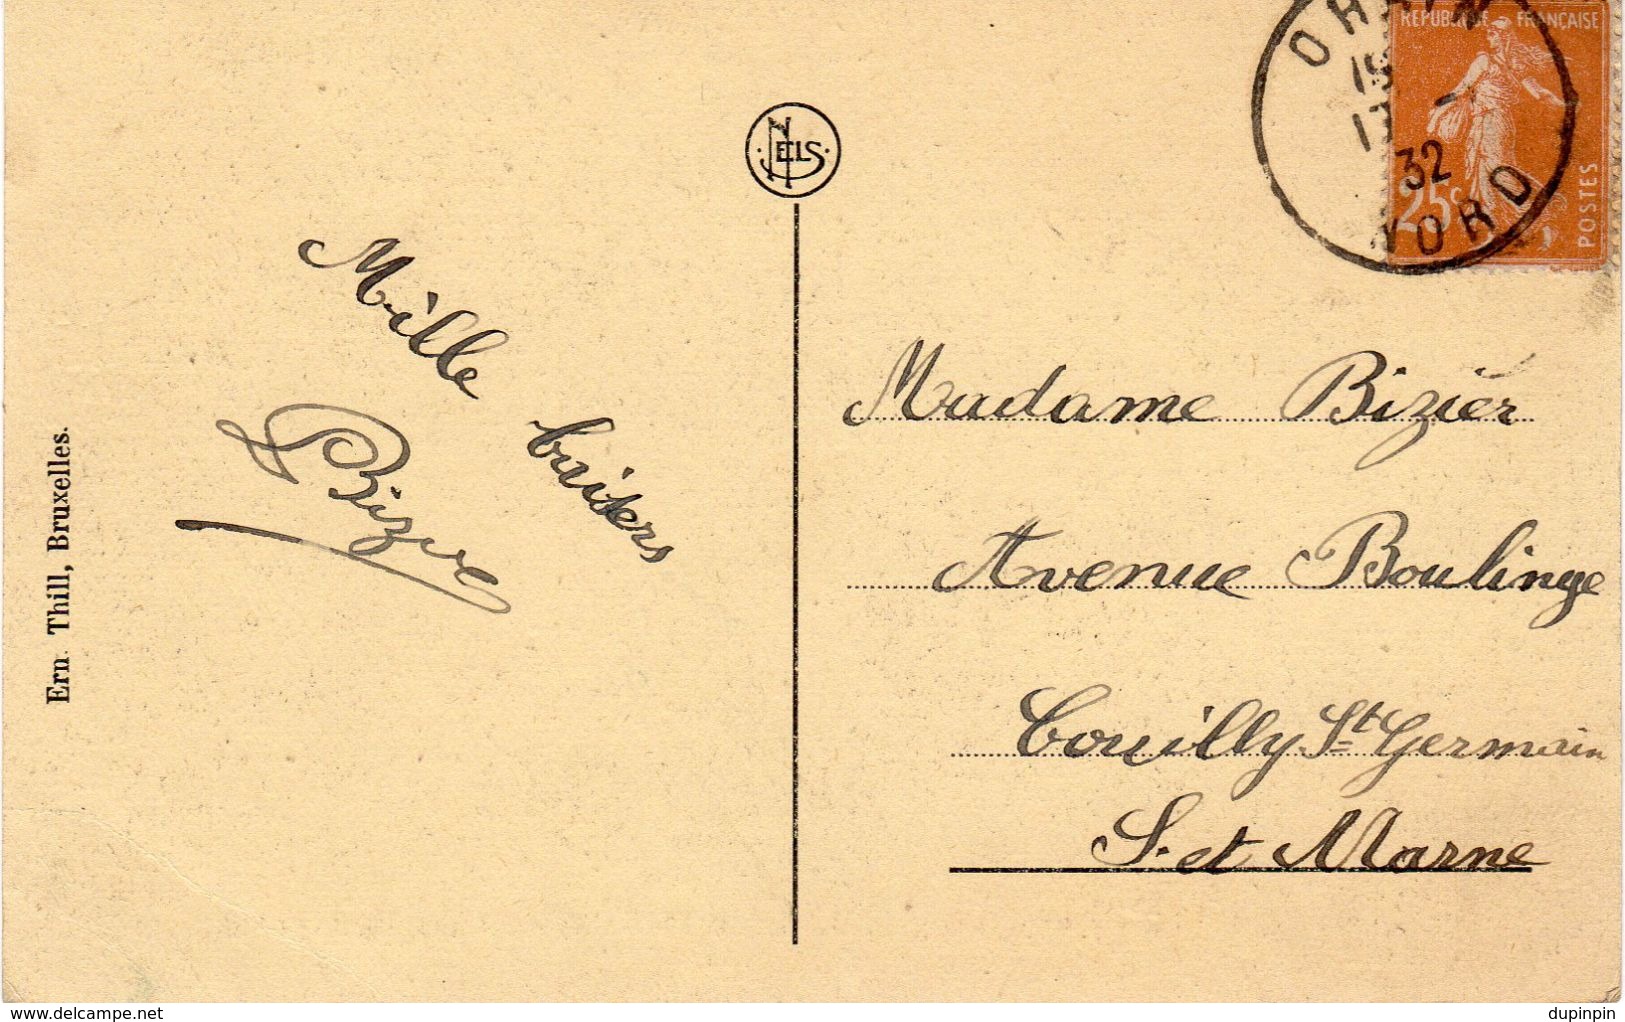 Mille baisers
Bizier
NELS
Ern. Thill, Bruxelles.
REPUBLIQUE FRANÇAISE
POSTES
25c
32
NORD
Madame Bizier
Avenue Boulinge
Couilly St Germain
S. et Marne
www.delcampe.net
dupinpin